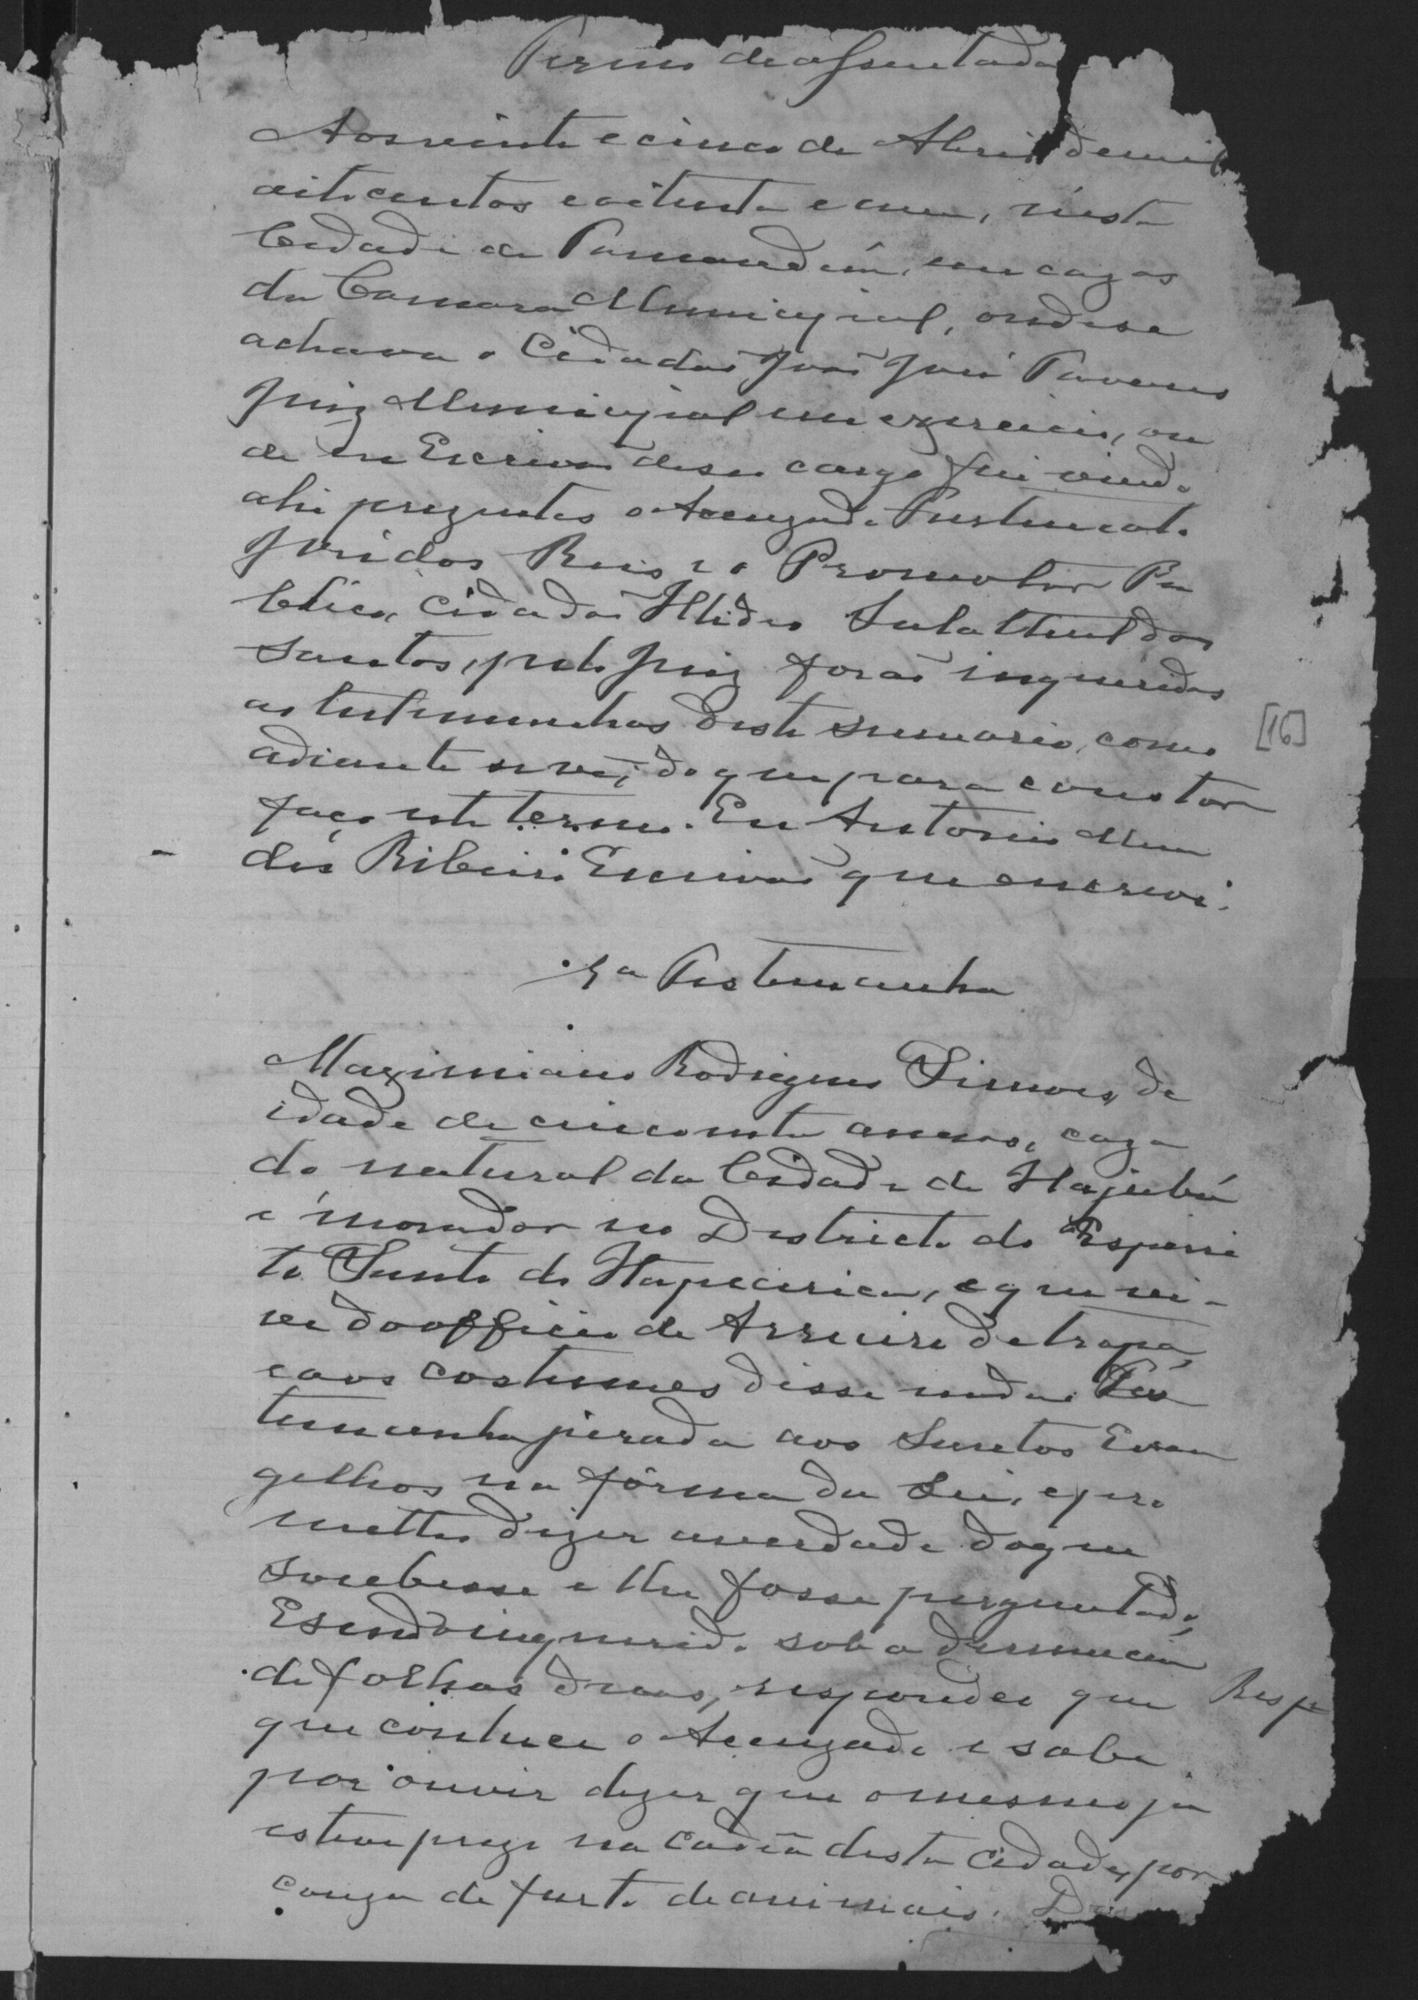 Termo de assentada
Aos vinte e cinco de Abril de mil
oito centos e oitenta e um, nesta
Cidade de Tamanduá, em cazas
da Camara Municipal, onde se
achava o Cidadão João José Tavares
Juiz Municipal em exercicio, on
de eu Escrivão de seu cargo fui vindo
ahi prezentes o Acuzado
dos Reis e o Promotor Pu
blico, Cidadão Illidio Salathiel dos
Santos, pelo Juiz forão inqueridas
as testemunhas deste sumario, como
adiante se vê; do que para constar
faço este termo. Eu Antonio Men
des Ribeiro Escrivão que escrevi.
1a Testemunha
[16]
Maximiano Rodrigues Simoes, de
idade de cincoenta annos, caza
do natural da Cidade de Itajubá
e morador no Districto do Esperi
to Santo do Itapecirica, e que vi-
ve do officio de Arreeiro de tropa,
e aos costumes disse nada. Tes
temunha jurada aos Santos Evan
gelhos na fórma da Lei, e pro
metteo dizer a verdade do que
soubesse e lhe fosse perguntado,
E sendo inquerido sob a denuncia
de folhas duas, respondeo que Resp
que conhece o Acuzado e sabe
por ouvir dizer que o mesmo ja
esteve prezo na Cadêa desta Cidade, por
cauza de furto de animais.